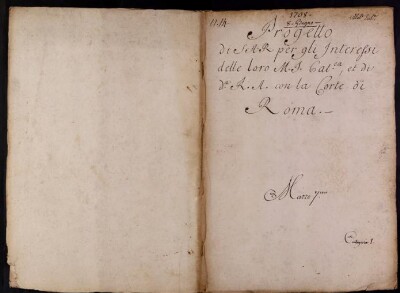 1708
8. Giugno
Progetto
di S.A.R per gli Interessi
delle loro M.M. Cat.ca, et di
d.a R.A. con la Corte di
Roma.
Mazzo pmo
Categoria 1.